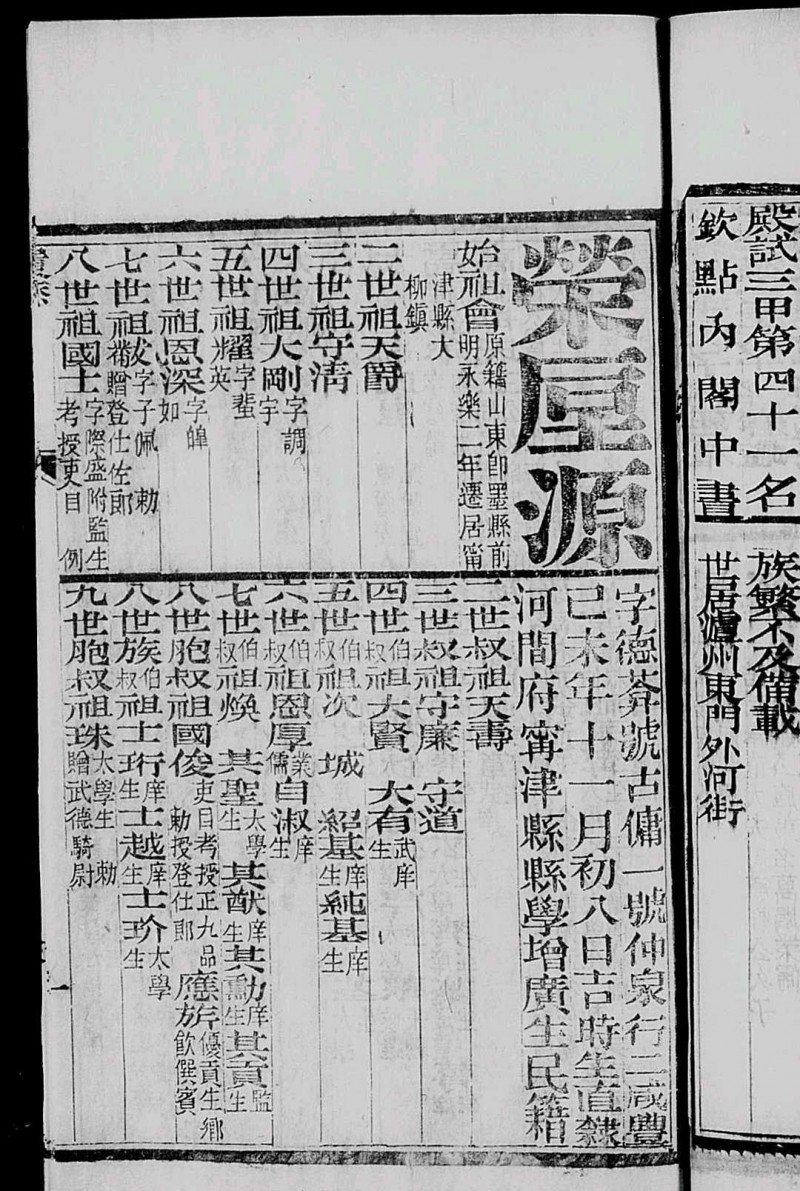 殿試三甲第四十一名
欽點內閣中書
族繁不及備載
世居瀘州東門外河街
榮厔源
字德莽號古傭一號仲泉行二咸豐
己未年十一月初八日吉時生直隸
河間府甯津縣縣學增廣生民籍
始祖會原籍山東卽墨縣前明永樂二年遷居甯
津縣大柳鎮
二世祖天爵
三世祖守淸
四世祖大剛字調宇
五世祖耀字蜚英
六世祖恩深字皥如
七世祖黻字子佩勅贈登仕佐郞
八世祖國士字際盛附監生例考授吏目
二世叔祖天壽
三世叔祖守廉 守道
四世伯叔祖大賢 大有武庠生
五世伯叔祖次城 紹基庠生純基庠生
六世伯叔祖恩厚業儒自淑庠生
七世伯叔祖煥 其聖太學生其猷庠生其勳庠生其貢監生
八世胞叔祖國俊吏目考授正九品勅授登仕郞應旂優貢生鄉飮僎賓
八世族伯叔祖士珩庠生士越庠生士玠太學生
九世胞叔祖珠太學生勅贈武德騎尉